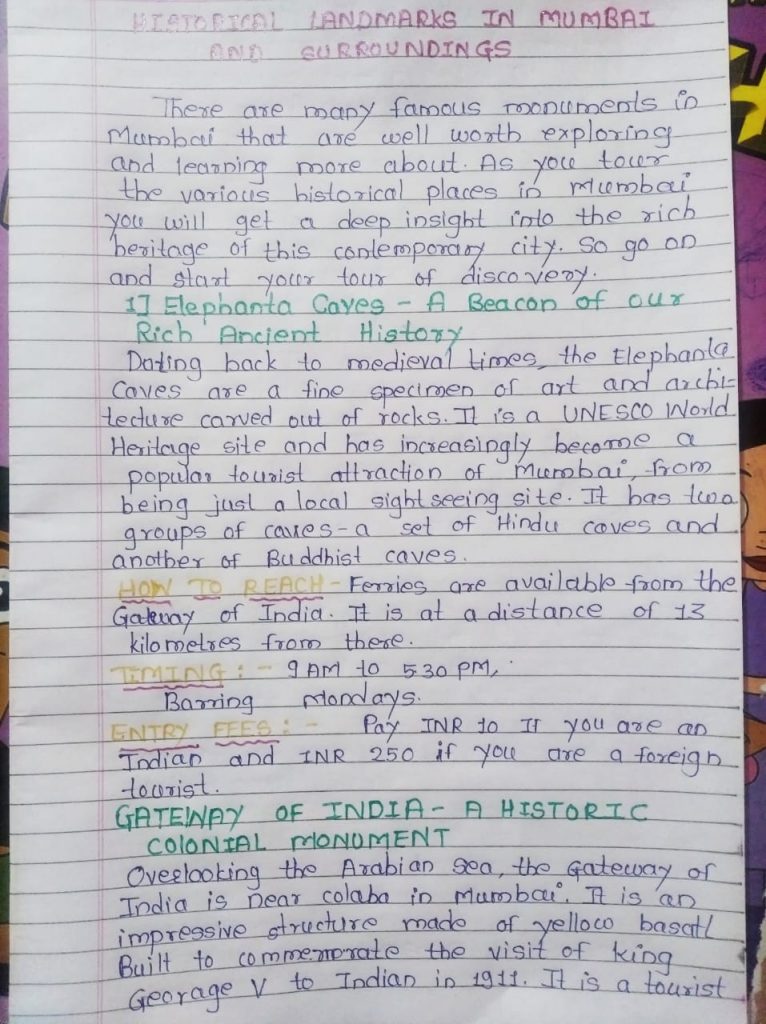 HISTORICAL LANDMARKS IN MUMBAI
AND SURROUNDINGS
There are many famous monuments in
Mumbai that are well worth exploring
and learning more about. As you tour
the various historical places in Mumbai
you will get a deep insight into the rich
heritage of this contemporary city. So go on
and start your tour of discovery.
1] Elephanta Caves - A Beacon of our
Rich Ancient History
Dating back to medieval times, the Elephanta
Caves are a fine specimen of art and archi-
tecture carved out of rocks. It is a UNESCO World
Heritage site and has increasingly become a
popular tourist attraction of Mumbai, from
being just a local sight seeing site. It has two
groups of caves - a set of Hindu caves and
another of Buddhist caves.
HOW TO REACH - Ferries are available from the
Gateway of India. It is at a distance of 13
kilometres from there.
TIMING : - 9 AM to 5 30 PM,
Barring Mondays.
ENTRY FEES : - Pay INR 10 If you are an
Indian and INR 250 if you are a foreign
tourist.
GATEWAY OF INDIA - A HISTORIC
COLONIAL MONUMENT
Overlooking the Arabian Sea, the Gateway of
India is near colaba in Mumbai. It is an
impressive structure made of yellow basatl
Built to commemorate the visit of king
Georage V to Indian in 1911. It is a tourist